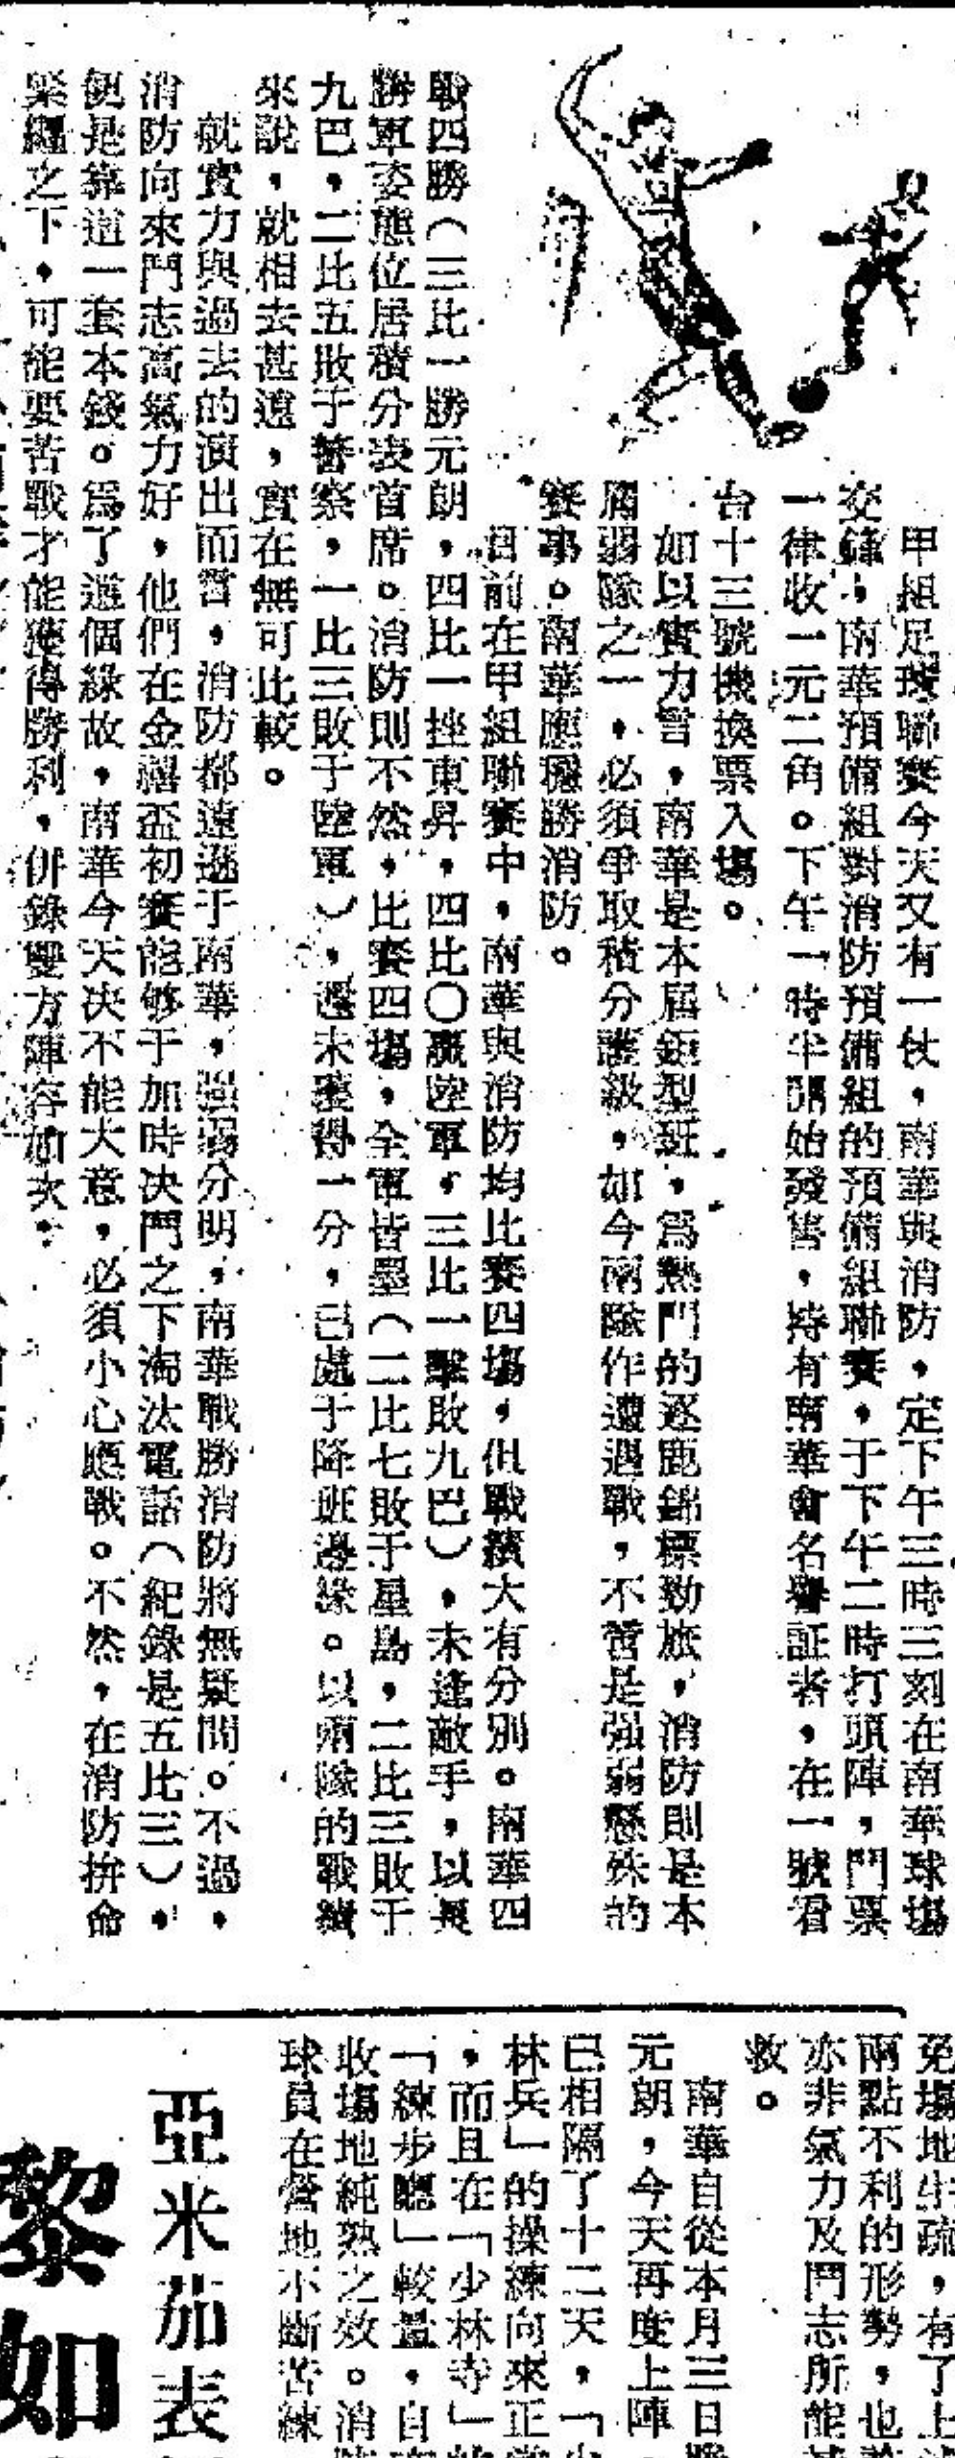 甲組足球聯賽今天又有一仗，南華與消防，定下午三時三刻在南華球塲
交鋒，南華預備組對消防預備組的預備組聯賽，于下午二時打頭陣，門票
一律收一元二角。下午一時半開始發售，持有南華會名譽証者，在一號看
台十三號機換票入塲。
加以實力言，南華是本屆鉅型班，為熱門的逐鹿錦標勁旅，消防則是本
屆弱隊之一，必須爭取積分護級，如今兩隊作遭遇戰，不啻是强弱懸殊的
賽事。南華應穩勝消防。
目前在甲組聯賽中，南華與消防均比賽四塲，但戰績大有分別。南華四
戰四勝（三比一勝元朗，四比一挫東昇，四比〇贏陸軍，三比一擊敗九巴），未逢敵手，以長
勝軍姿態位居積分表首席。消防則不然，比賽四塲，全軍皆墨（二比七敗于星島，二比三敗于
九巴，二比五敗于警察，一比三敗于陸軍），還未獲得一分，已處于降班邊緣。以兩隊的戰績
來說，就相去甚遠，實在無可比較。
就實力與過去的演出而言，消防都遠遜于南華，强弱分明，南華戰勝消防將無疑問。不過，
消防向來鬥志高氣力好，他們在金禧盃初賽能够于加時决鬥之下淘汰電話（紀錄是五比三），
便是靠這一套本錢。為了這個緣故，南華今天决不能大意，必須小心應戰。不然，在消防拚命
緊纏之下，可能要苦戰才能獲得勝利，併錄雙方陣容如次：
免塲地生疏，有了上
兩點不利的形勢，也
亦非氣力及鬥志所能
救。
南華自從本月三日
元朗，今天再度上陣，
已相隔了十二天，「少
林兵」的操練向來正常
，而且在「少林寺」的
「練步廳」較量，自
收塲地純熟之效。消
球員在營地不斷苦練
亞米茄表
黎如